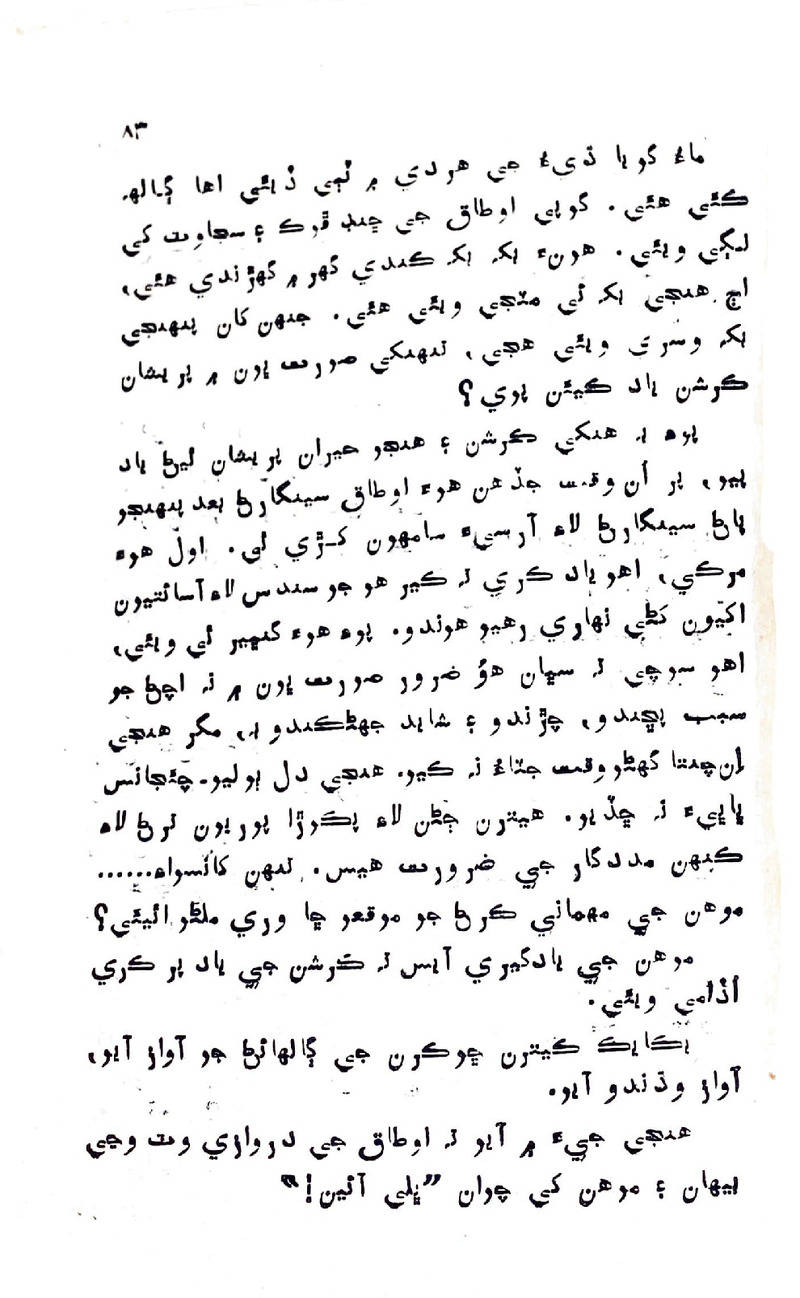 ٨٣
ماءُ گويا ڌيءَ جي هردي ۾ ٽٻي ڏيئي اها ڳالهہ
ڪئي هئي. گوپي اوطاق جي ڇنڊ ڦوڪ ۽ سجاوت کي
لڳي ويئي. هوءَ بڪ بڪ ڪندي گهر ۾ گهڙندي هئي،
اڄ هنجي بک ئي مٽجي ويئي هئي. جنهن کان پنهنجي
بک وسري ويئي هجي، تنهنکي صورت ڀون ۾ پريشان
ڪرشن ياد ڪيئن پوي؟
پوءِ بہ هنکي ڪرشن ۽ هنجو حيران پريشان ليڻ ياد
پيو، پر اُن وقت جڏهن هوءَ اوطاق سينگارڻ بعد پنهنجو
پاڻ سينگارڻ لاءِ آرسيءَ سامهون کڙي ٿي. اول هوءَ
مرڪي، اهو ياد ڪري تہ ڪير هو جو سندس لاءِ آسائتيون
اکيون کڻي نهاري رهيو هوندو. پوءِ هوءَ گنڀير ٿي ويئي،
اهو سوچي تہ سڀان هوُ ضرور صورت ڀون ۾ نہ اچڻ جو
سبب پڇندو، چڙندو ۽ شايد جهڻڪندو بہ، مگر هنجي
اِن چنتا گهڻو وقت جٽاءُ نہ ڪيو. هنجي دل ٻوليو۔چئجانس
ڀاڀيءَ نہ ڇڏيو. هيترن ڄڻن لاءِ پڪوڙا پوريون ترڻ لاءِ
ڪنهن مددگار جي ضرورت هيس. تنهن کانسواءِ......
موهن جي مهماني ڪرڻ جو موقعو ڇا وري ملڻو اٿيئي؟
موهن جي يادگيري آيس تہ ڪرشن جي ياد پر ڪري
اُڏامي ويئي.
يڪايڪ ڪيترن ڇوڪرن جي ڳالهائڻ جو آواز آيو،
آواز وڌندو آيو.
هنجي جيءَ ۾ آيو تہ اوطاق جي دروازي وٽ وڃي
بيهان ۽ موهن کي چوان ”ڀلي آئين!“